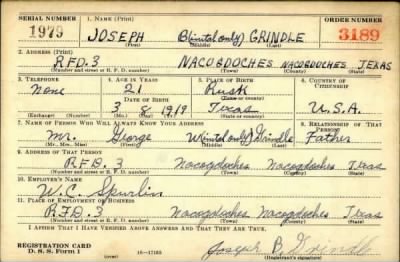 SERIAL NUMBER 1. NAME (Print) ORDER NUMBER
1979 JOSEPH B(initial only) GRINDLE 3189
(First) (Middle) (Last)
2. ADDRESS (Print)
R.F.D. 3 NACOGDOCHES NACOGDOCHES TEXAS
(Number and street or R. F. D. number) (Town) (County) (State)
3. TELEPHONE 4. AGE IN YEARS 5. PLACE OF BIRTH 6. COUNTRY OF CITIZENSHIP
None 21 Rusk
DATE OF BIRTH (Town or county)
3 8 1919 Texas U.S.A.
(Exchange) (Number) (Mo.) (Day) (Yr.) (State or country)
7. NAME OF PERSON WHO WILL ALWAYS KNOW YOUR ADDRESS 8. RELATIONSHIP OF THAT PERSON
Mr. George W(initial only) Grindle Father
(Mr., Mrs., Miss) (First) (Middle) (Last)
9. ADDRESS OF THAT PERSON
R.F.D. 3 Nacogdoches Nacogdoches Texas
(Number and street or R. F. D. number) (Town) (County) (State)
10. EMPLOYER'S NAME
W. C. Spurlin
11. PLACE OF EMPLOYMENT OR BUSINESS
R.F.D. 3 Nacogdoches Nacogdoches Texas
(Number and street or R. F. D. number) (Town) (County) (State)
I AFFIRM THAT I HAVE VERIFIED ABOVE ANSWERS AND THAT THEY ARE TRUE.
REGISTRATION CARD
D. S. S. Form 1 (over) Joseph B. Grindle
(Registrant's signature)